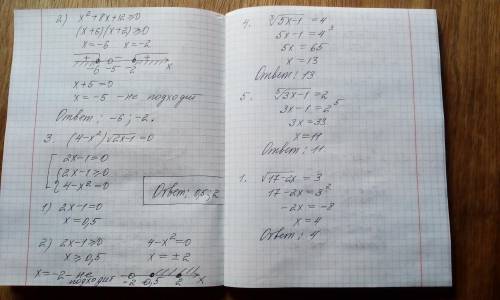 2) x²+8x+12≥0
(x+6)(x+2)≥0
x=-6 x=-2
-6 -5 -2 x
x+5=0
x=-5 - не подходит
Ответ: -6; -2.
3. (4-x²)√2x-1=0
2x-1=0
2x-1≥0
4-x²=0
Ответ: 0,5; 2
1) 2x-1=0
x=0,5
2) 2x-1≥0 4-x²=0
x≥0,5 x=±2
x=-2 - не подходит -2 0,5 2 x
4. ³√5x-1=4
5x-1=4³
5x=65
x=13
Ответ: 13
5. ⁵√3x-1=2
3x-1=2⁵
3x=33
x=11
Ответ: 11
1. √17-2x=3
17-2x=3²
-2x=-8
x=4
Ответ: 4